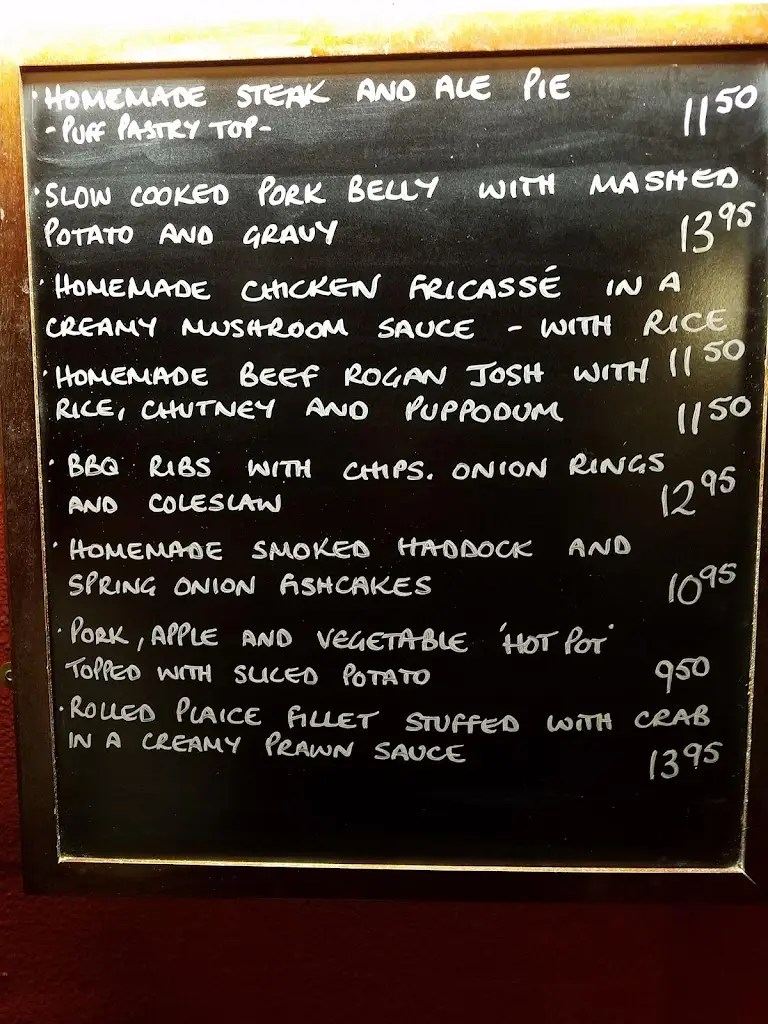 · HOMEMADE STEAK AND ALE PIE
- PUFF PASTRY TOP - 11 50
· SLOW COOKED PORK BELLY WITH MASHED
POTATO AND GRAVY 13 95
· HOMEMADE CHICKEN FRICASSÉ IN A
CREAMY MUSHROOM SAUCE - WITH RICE
11 50
· HOMEMADE BEEF ROGAN JOSH WITH
RICE, CHUTNEY AND PUPPODUM 11 50
· BBQ RIBS WITH CHIPS. ONION RINGS
AND COLESLAW 12 95
· HOMEMADE SMOKED HADDOCK AND
SPRING ONION FISHCAKES 10 95
· PORK, APPLE AND VEGETABLE 'HOT POT'
TOPPED WITH SLICED POTATO 9 50
· ROLLED PLAICE FILLET STUFFED WITH CRAB
IN A CREAMY PRAWN SAUCE 13 95